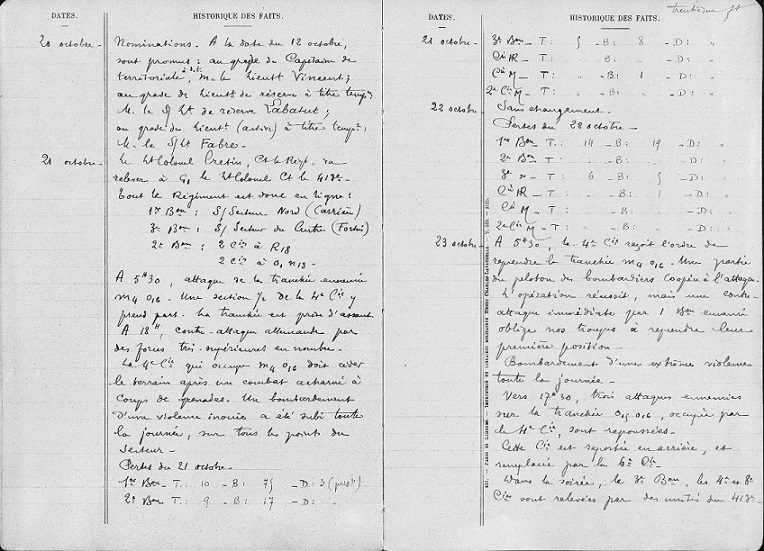 DATES.
HISTORIQUE DES FAITS.
20 octobre -
Nominations. A la date du 12 octobre,
sont promus : au grade de Capitaine de
territoriale à t.t. M. le lieutt Vincent ;
au grade de lieutt de réserve à titre tempre
M. le S/Lt de réserve Labatut ;
au grade de lieutt (active) à titre tempre
M. le S/Lt Fabre -
21 octobre -
Le Lt Colonel Cretin, Ct le Régt. va
relever à G1 le Lt Colonel Ct le 413e -
Tout le Régiment est donc en ligne :
1er Bon : S/Secteur Nord (Carrière)
3e Bon : S/Secteur du Centre (Fortin)
2e Bon : 2 Cies à R18
2 Cies à O1 n13 -
A 5H30, attaque de la tranchée ennemie
m4 o16 - Une section 1/2 de la 4e Cie y
prend part - La tranchée est prise d'assaut.
A 18H, contre-attaque allemande par
des forces très supérieures en nombre -
La 4e Cie qui occupe m4 o16 doit céder
le terrain après un combat acharné à
coups de grenades. Un bombardement
d'une violence inouïe a été subi toute
la journée, sur tous les points du
Secteur -
Pertes du 21 octobre -
1er Bon T : 10 - B : 75 - D : 3
2e Bon T : 9 - B : 17 - D : "
DATES.
HISTORIQUE DES FAITS.
21 octobre -
3e Bon - T : 5 - B : 8 - D : "
Cie HR - T : " - B : " - D : "
Cie M - T : " - B : 1 - D : "
2e Cie M - T : " - B : " - D : "
22 octobre
Sans changement -
Pertes du 22 octobre -
1er Bon - T : 14 - B : 19 - D : "
2e Bon - T : " - B : " - D : "
3e " - T : 6 - B : 5 - D : "
Cie HR - T : " - B : 1 - D : "
Cie M - T : " - B : " - D : "
2e Cie M - T : " - B : " - D : "
23 octobre -
A 5H30, la 4e Cie reçoit l'ordre de
reprendre la tranchée m4 o16. Une partie
du peloton des bombardiers coopère à l'attaque.
L'opération réussit, mais une contre-
attaque immédiate par 1 Bon ennemi
oblige nos troupes à reprendre leur
première position -
Bombardement d'une extrême violence
toute la journée -
Vers 17H30, trois attaques ennemies
sur la tranchée o15 o16, occupée par
la 4e Cie, sont repoussées -
Cette Cie est reportée en arrière, et
remplacée par la 6e Cie -
Dans la soirée, le 3e Bon, les 4e et 8e
Cies sont relevées par des unités du 413e -